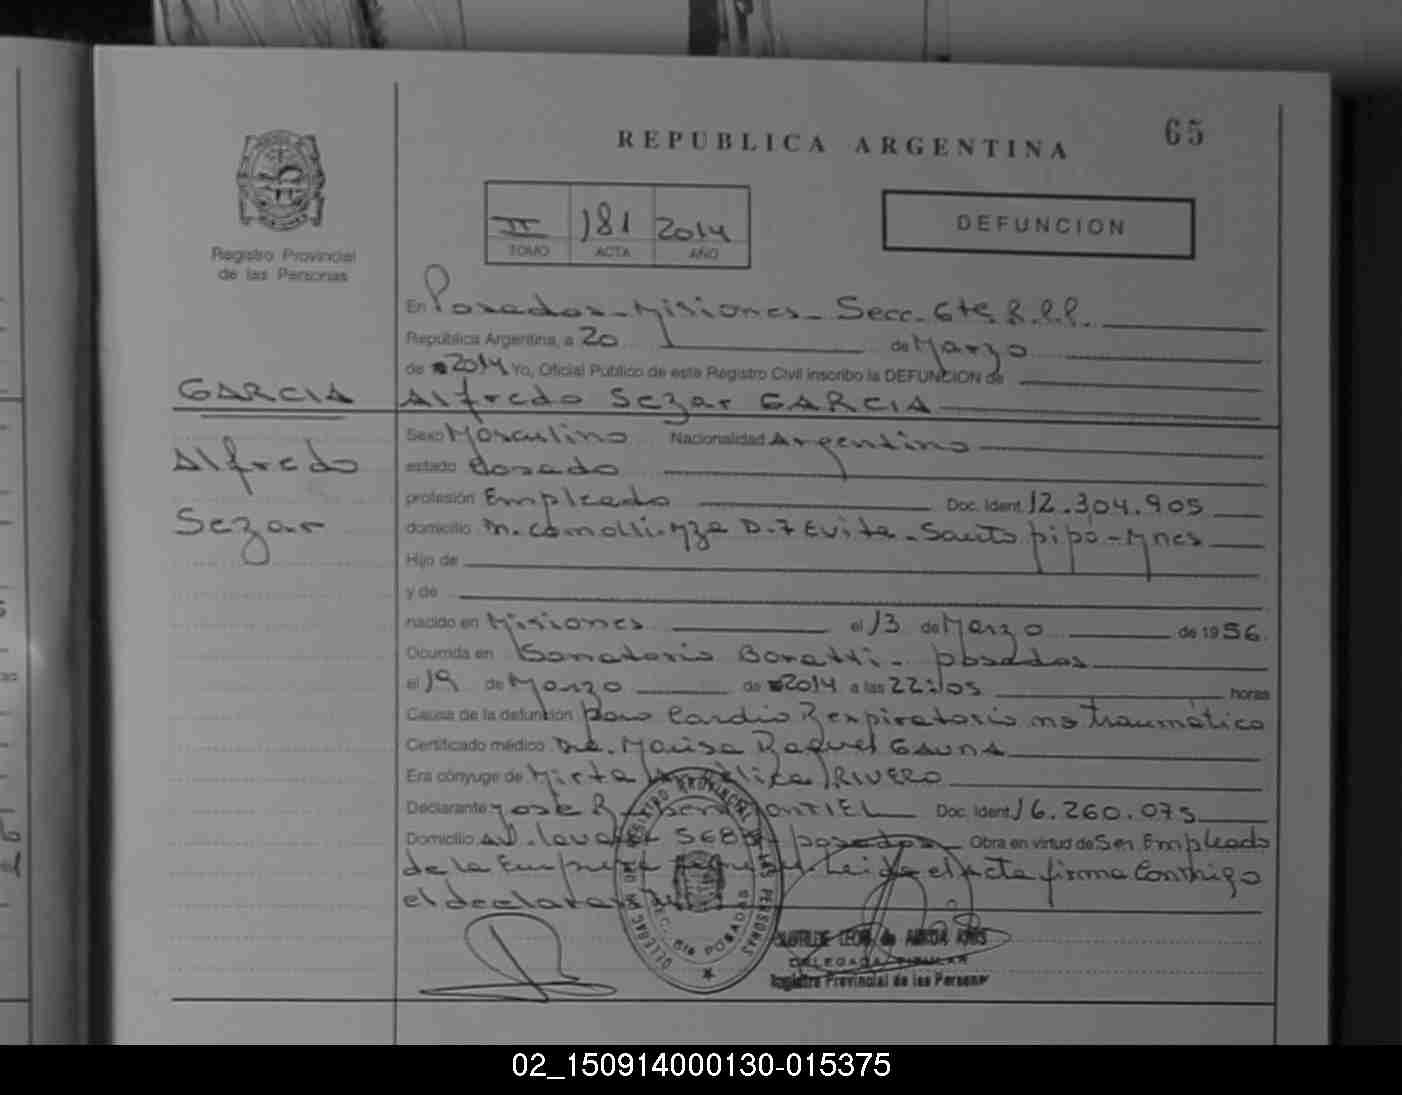 65
REPUBLICA ARGENTINA
II 181 2014
TOMO ACTA AÑO
DEFUNCION
Registro Provincial
de las Personas
En Posadas - Misiones - Secc. 6ta R.P.P.
República Argentina, a 20 de Marzo
de 2014 Yo, Oficial Público de este Registro Civil inscribo la DEFUNCION de
GARCIA
Alfredo Sezar GARCIA
Alfredo
Sezar
Sexo Masculino Nacionalidad Argentino
estado Casado
profesión Empleado Doc. Ident. 12.304.905
domicilio M. Comolli-Mza D-7 Evita - Santo pipó - Mnes
Hijo de
y de
nacido en Misiones el 13 de Marzo de 1956
Ocurrida en Sanatorio Boratti - posadas
el 19 de Marzo de 2014 a las 22:05 horas
Causa de la defunción paro Cardio Respiratorio no traumático
Certificado médico Dra. Marisa Raquel GAUNA
Era cónyuge de Mirta Angélica RIVERO
Declarante José MONTIEL Doc. Ident. 16.260.075
Domicilio Av. posadas Obra en virtud de Ser Empleado
de la Empresa Leida el Acta firma Conmigo
el declarante
REGISTRO PROVINCIAL DE LAS PERSONAS
SEC. 6ta POSADAS
CLOTILDE LEON de
DELEGADA TITULAR
Registro Provincial de las Personas
02_150914000130-015375